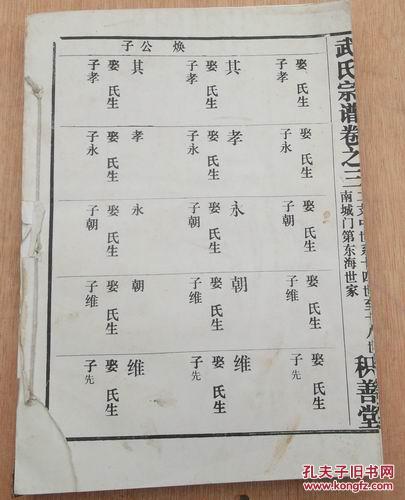 武氏宗谱卷之三
世系十四世至十八世
南城门第东海世家
积善堂
焕公子
娶氏生
子孝
其
娶氏生
子孝
其
娶氏生
子孝
娶氏生
子永
孝
娶氏生
子永
孝
娶氏生
子永
娶氏生
子朝
永
娶氏生
子朝
永
娶氏生
子朝
娶氏生
子维
朝
娶氏生
子维
朝
娶氏生
子维
娶氏生
子先
维
娶氏生
子先
维
娶氏生
子先
孔夫子旧书网
WWW.KONGFZ.COM